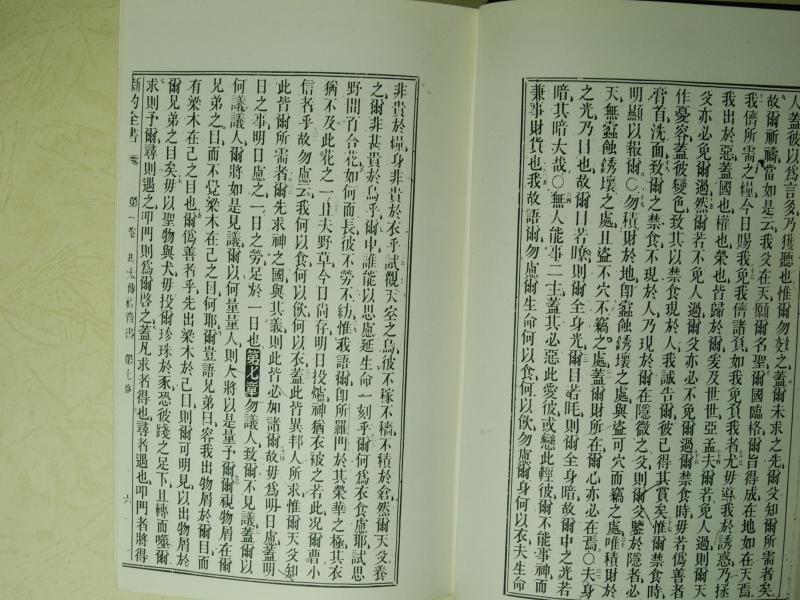 人蓋彼以爲言多乃獲聽也惟爾勿效之蓋爾未求之先爾父知爾所需者矣
故爾祈禱當如是云我父在天願爾名聖爾國臨格爾旨得成在地如在天焉
我儕所需之糧今日賜我免我儕諸負如我免負我者尤毋導我於誘惑乃拯
我出於惡蓋國也權也榮也皆歸於爾爰及世世亞孟夫爾若免人過則爾天
父亦必免爾過然爾若不免人過爾父亦必不免爾過爾禁食時毋若僞善者
作憂容蓋彼變色致其以禁食現於人我誠告爾彼已得其賞矣惟爾禁食時
膏首洗面致爾之禁食不現於人乃現於爾在隱微之父則爾父鑒於隱者必
明顯以報爾○勿積財於地卽蟲蝕銹壞之處與盜可穴而竊之處唯積財於
天無蟲蝕銹壞之處且盜不穴不竊之處蓋爾財所在爾心亦必在焉○夫身
之光乃目也故爾目若瞭則爾全身光爾目若眊則爾全身暗故爾中之光若
暗其暗大哉○無人能事二主蓋其必惡此愛彼或戀此輕彼爾不能事神而
兼事財貨也我故語爾勿慮爾生命何以食何以飲勿慮爾身何以衣夫生命
非貴於糧身非貴於衣乎試觀天空之鳥彼不稼不穡不積於倉然爾天父養
之爾非甚貴於鳥乎爾中誰能以思慮延生命一刻乎爾何爲衣食慮耶試思
野間百合花如何而長彼不勞不紡惟我語爾卽所羅門於其榮華之極其衣
猶不及此花之一且夫野草今日尚存明日投爐神猶衣被之若此況爾曹小
信者乎故勿慮云我何以食何以飲何以衣蓋此皆異邦人所求惟爾天父知
此皆爾所需者爾先求神之國與其義則此皆必加諸爾故毋爲明日慮蓋明
日之事明日慮之一日之勞足於一日也第七章勿議人致爾不見議蓋爾以
何議議人爾將如是見議爾以何量量人則人將以是量予爾爾視物屑在爾
兄弟之目而不覺梁木在己之目何耶爾豈語兄弟曰容我出物屑於爾目而
有梁木在己之目也爾僞善者乎先出梁木於己目則爾可明見以出物屑於
爾兄弟之目矣毋以聖物與犬毋投爾珍珠於豕恐彼踐之足下且轉而噬爾
求則予爾尋則遇之叩門則爲爾啓之蓋凡求者得也尋者遇也叩門者將得
新約全書 第一卷 馬太傳福音書 第七章 六